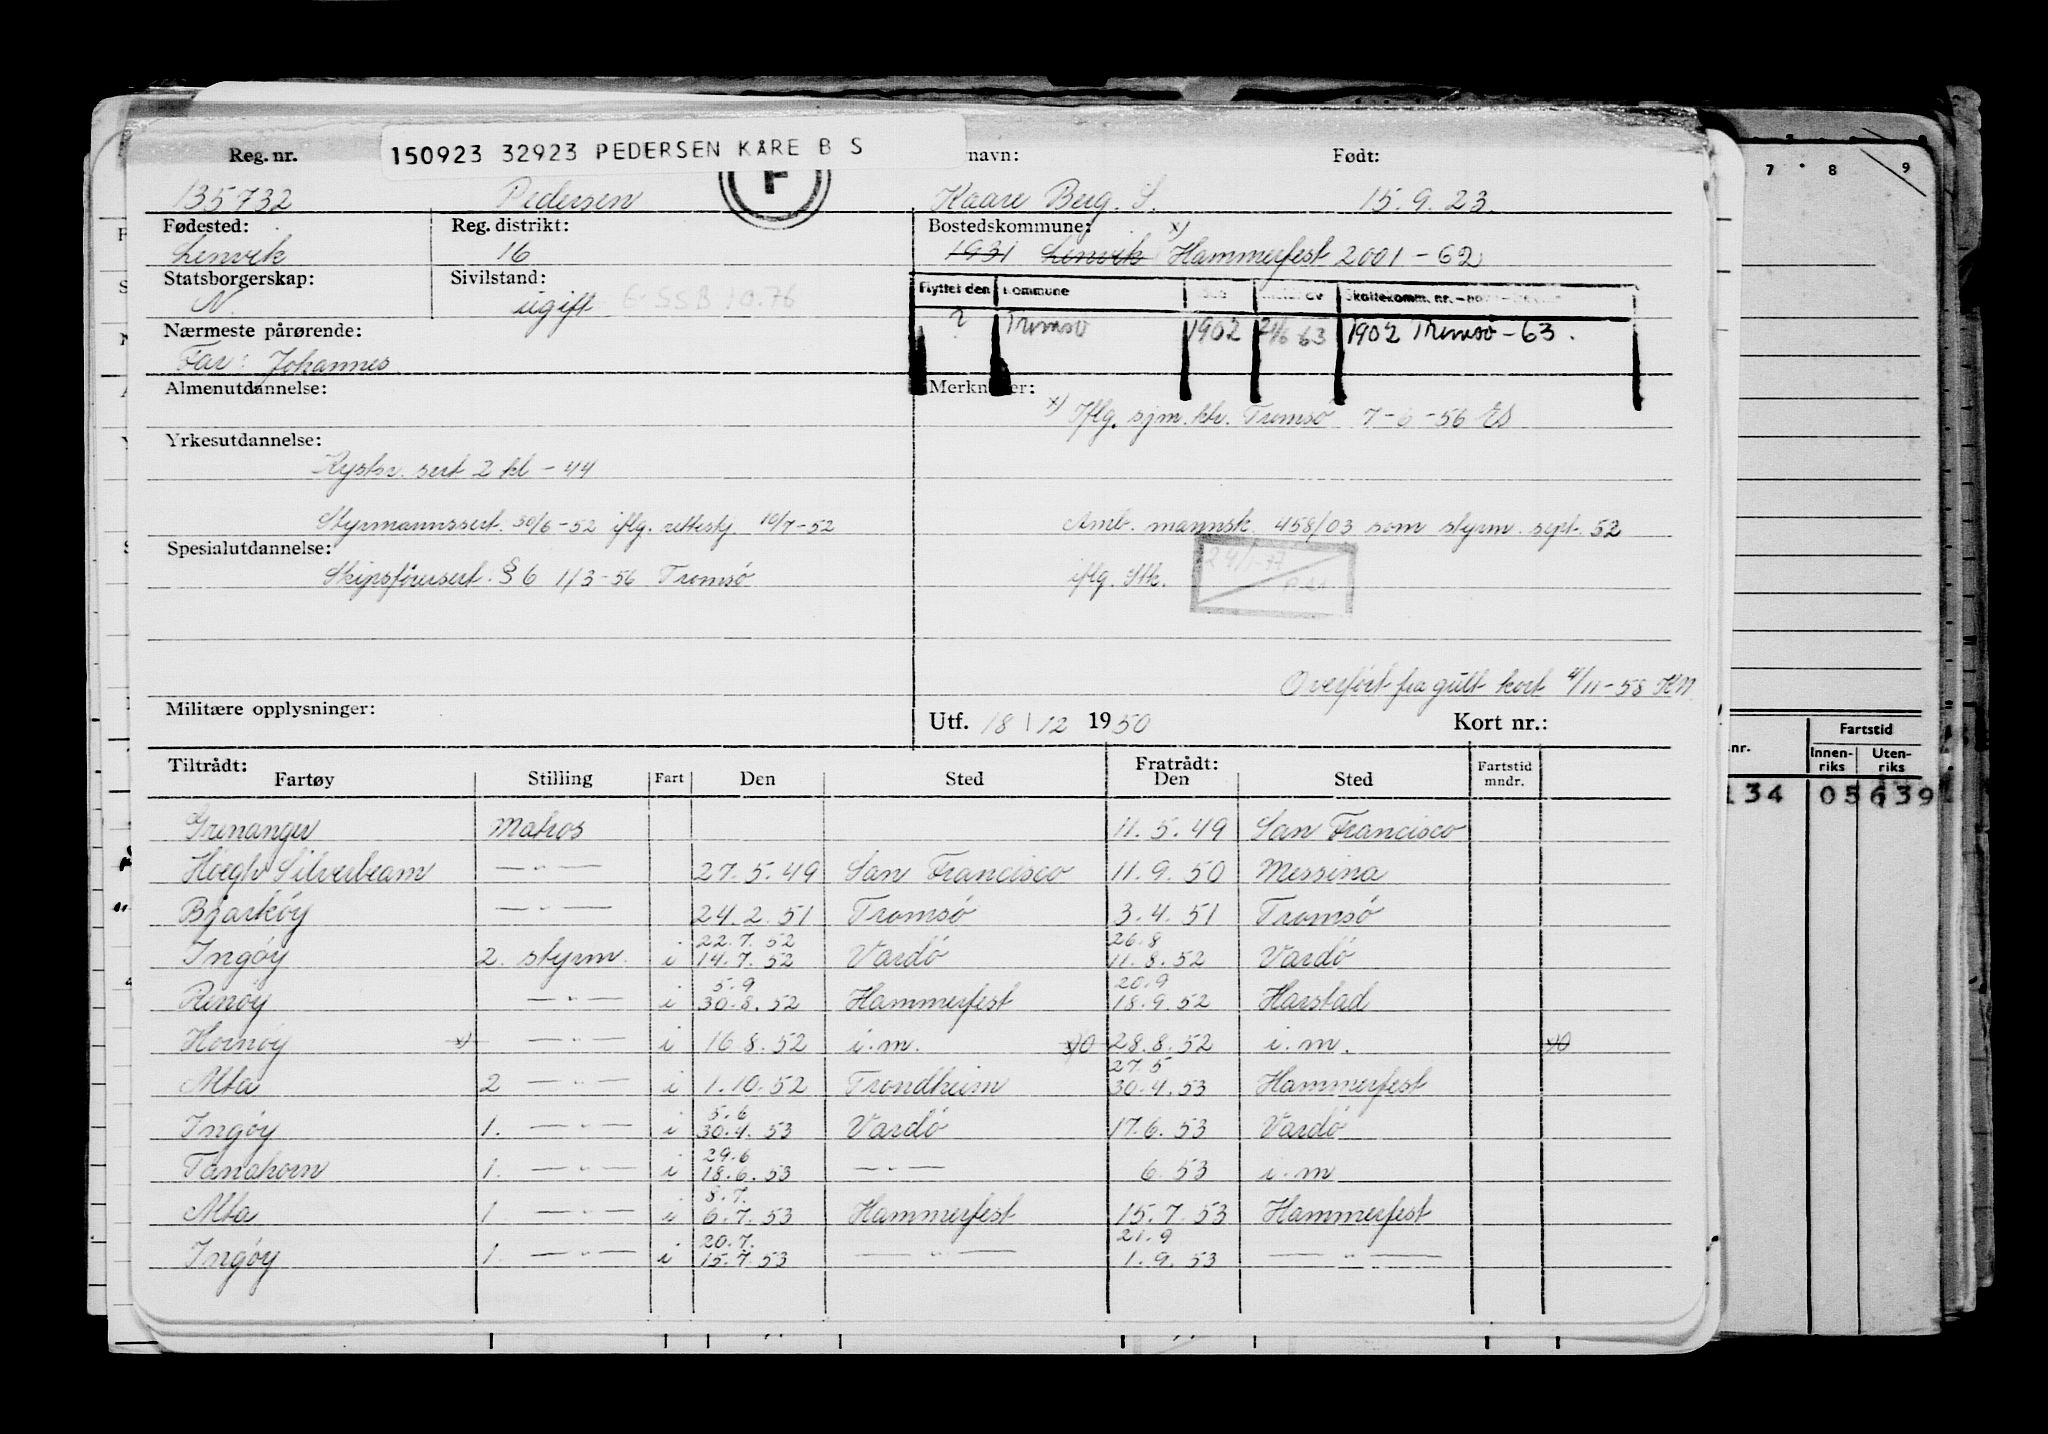 150923 32923 PEDERSEN KÅRE B S
Reg. nr. rnavn: Født:
135732 Pedersen F Kaare Berg. S. 15.9.23.
Fødested: Reg. distrikt: Bostedskommune:
Lenvik 16 1931 Lenvik x) Hammerfest 2001-62
Statsborgerskap: Sivilstand: Flyttet den Kommune
N. ugift E-SSB 10.76
Nærmeste pårørende: ? Tromsø 1902 63 1902 Tromsø-63.
Far: Johannes
Almenutdannelse: Merkn er:
x) Iflg. sjm. ktr. Tromsø 7-6-56 ES
Yrkesutdannelse:
Kystsk. sert 2 kl - 44
Styrmannssert. 30/6-52 iflg. retteskj. 10/7-52 Amb. mannsk. 458/03 som styrm. sept. 52
Spesialutdannelse:
Skipsførersert. § 6 1/3-56 Tromsø iflg. Stk. 24/1-77
Overført fra gult kort 4/11-58 KN
Militære opplysninger: Utf. 18/12 1950 Kort nr.:
Tiltrådt: Fratrådt:
Fartøy Stilling Fart Den Sted Den Sted Fartstid mndr.
Grenanger Matros 11.5.49 San Francisco
Høegh Silverbeam —"— 27.5.49 San Francisco 11.9.50 Messina
Bjarkøy —"— 24.2.51 Tromsø 3.4.51 Tromsø
22.7.52 26.8
Ingøy 2. styrm. i 14.7.52 Vardø 11.8.52 Vardø
5.9 20.9
Renøy —"— i 30.8.52 Hammerfest 18.9.52 Harstad
Hornøy x) —"— i 16.8.52 i.m. x)0 28.8.52 i.m. x0
27.5
Alta 2 —"— i 1.10.52 Trondheim 30.4.53 Hammerfest
5.6
Ingøy 1. —"— i 30.4.53 Vardø 17.6.53 Vardø
29.6
Tanahorn 1. —"— i 18.6.53 —"— 6.53 i.m
8.7.
Alta 1. —"— i 6.7.53 Hammerfest 15.7.53 Hammerfest
20.7. 21.9
Ingøy 1. —"— i 15.7.53 —"— 1.9.53 —"—
7 8 9
nr. Fartstid
Innen-riks Uten-riks
134 05639